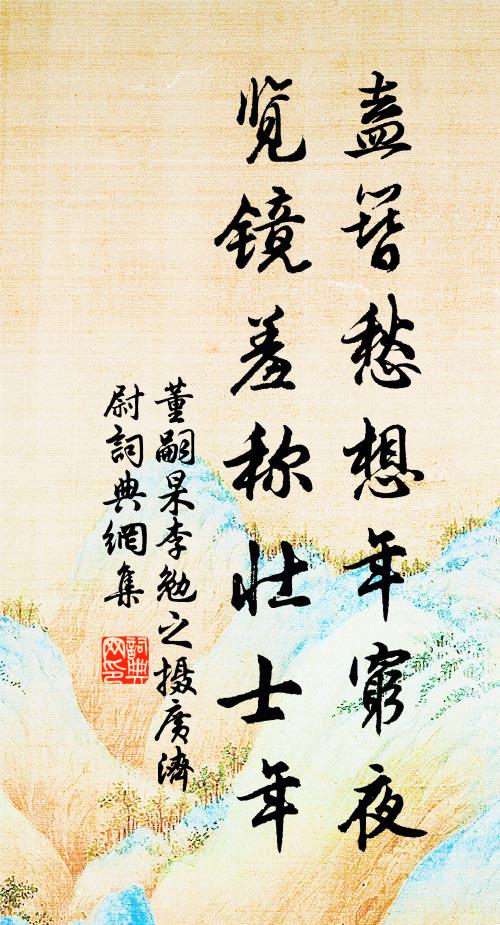 盍簪愁想年穷夜
览镜羞称壮士年
董嗣杲李勉之摄广济
尉词典網集
詞典網印